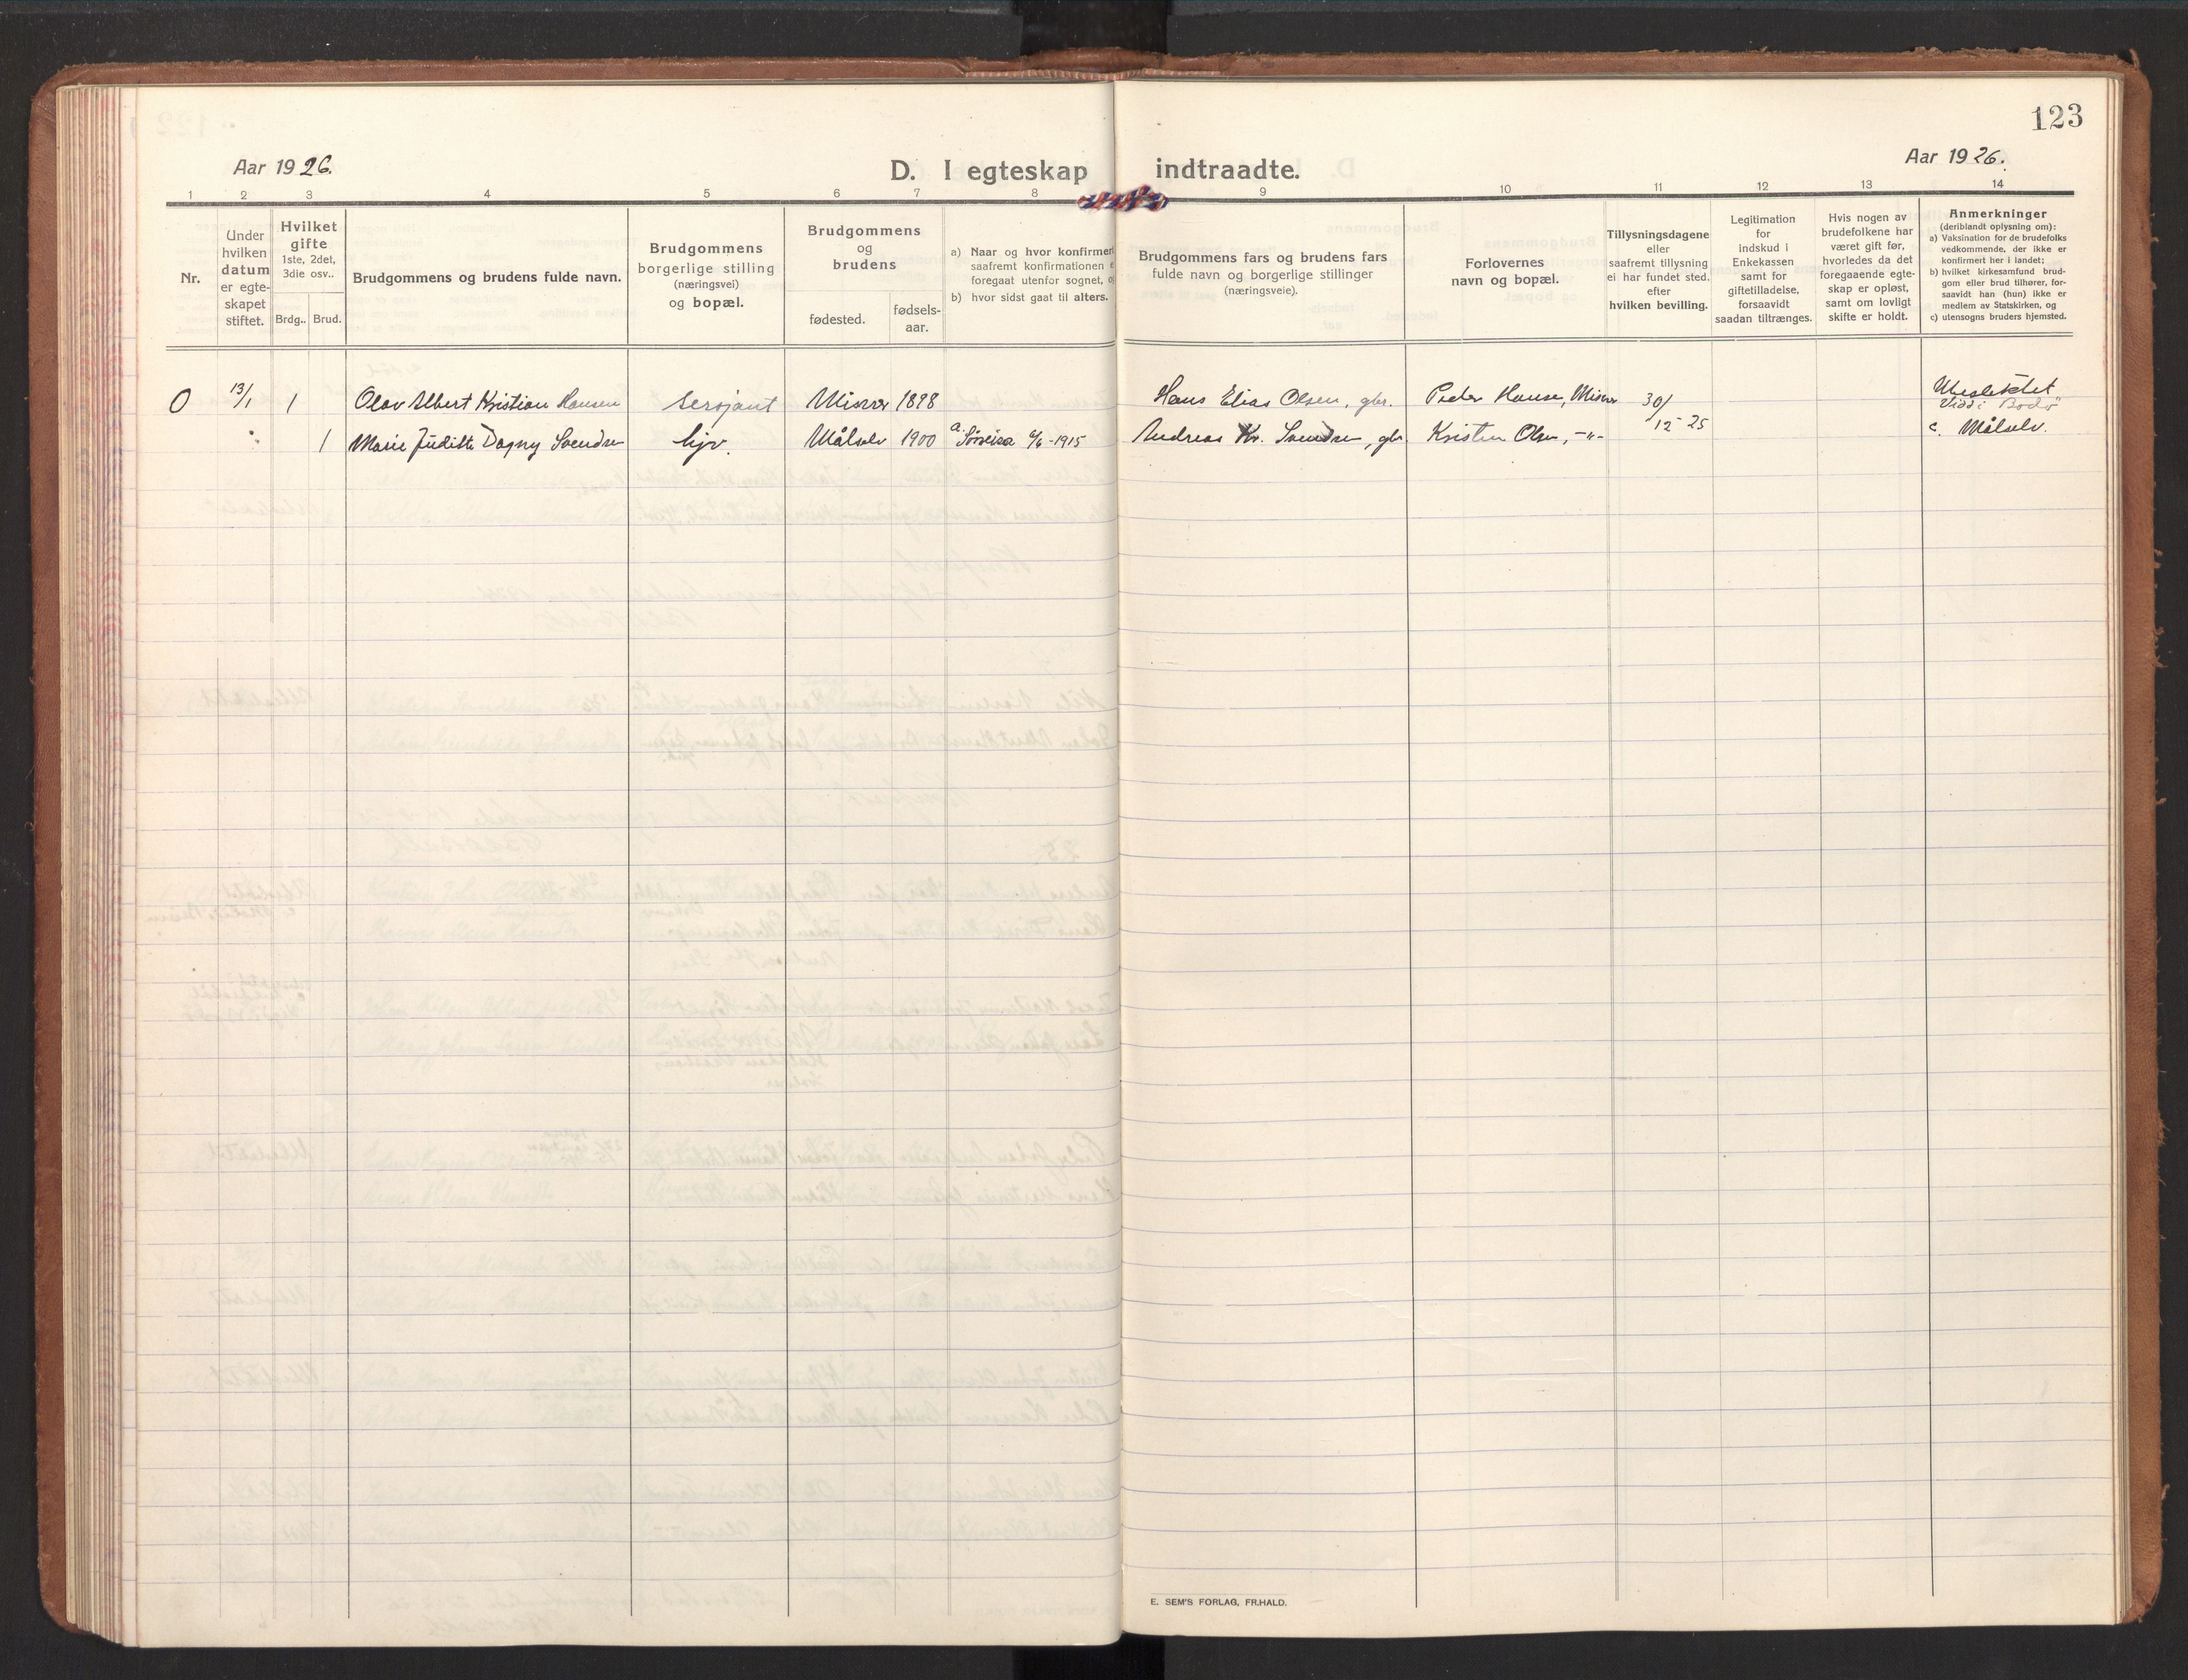 123
Aar 1926.
D. I egteskap indtraadte.
Aar 1926.
1 2 3 4 5 6 7 8 9 10 11 12 13 14
Nr.
Under
hvilken
datum
er egte-
skapet
stiftet.
Hvilket
gifte
1ste, 2det,
3die osv..
Brdg.. Brud.
Brudgommens og brudens fulde navn.
Brudgommens
borgerlige stilling
(næringsvei)
og bopæl.
Brudgommens
og
brudens
fødested.
fødsels-
aar.
a) Naar og hvor konfirmert
saafremt konfirmationen
foregaat utenfor sognet,
b) hvor sidst gaat til alters.
Brudgommens fars og brudens fars
fulde navn og borgerlige stillinger
(næringsveie).
Forlovernes
navn og bopæl.
Tillysningsdagene
eller
saafremt tillysning
ei har fundet sted,
efter
hvilken bevilling.
Legitimation
for
indskud i
Enkekassen
samt for
giftetilladelse,
forsaavidt
saadan tiltrænges.
Hvis nogen av
brudefolkene har
været gift før,
hvorledes da det
foregaaende egte-
skap er opløst,
samt om lovligt
skifte er holdt.
Anmerkninger
(deriblandt oplysning om):
a) Vaksination for de brudefolks
vedkommende, der ikke er
konfirmert her i landet;
b) hvilket kirkesamfund brud-
gom eller brud tilhører, for-
saavidt han (hun) ikke er
medlem av Statskirken, og
c) utensogns bruders hjemsted.
0 13/1 1 Olav Albert Kristian Hansen Sersjant Misvær 1898 Hans Elias Olsen, gbr. Peder Hansen, Misvær 30/12-25 Ubeslektet
Viet i Bodø
1 Marie Judith Dagny Svendsen hjv. Målselv 1900 a. Sørreisa 6/6-1915 Andreas Kr. Svendsen, gbr. Kristen Olsen, -"- c. Målselv.
E. SEM'S FORLAG, FR.HALD.